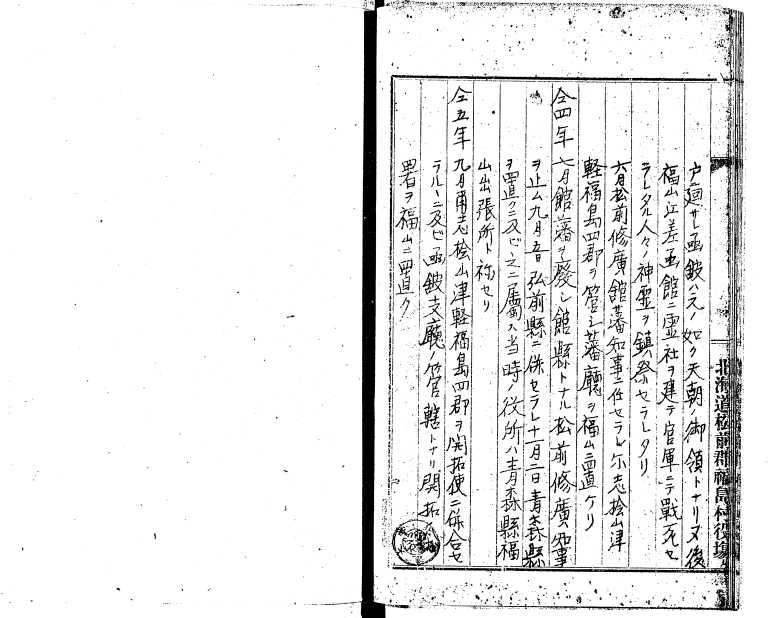 戸廻サレ函館ハ元ノ如ク天朝ノ御領トナリ又後
福山江差函館ニ霊社ヲ建テ官軍ニテ戦死セ
ラレタル人々ノ神霊ヲ鎮祭セラレタリ
六月松前修廣館藩知事ニ任セラレ尓志桧山津
軽福島四郡ヲ管シ藩廳ヲ福山ニ置ケリ
仝四年 七月館藩ヲ廢シ館縣トナル松前修廣知事
ヲ止ム九月五日弘前縣ニ併セラレ十一月二日青森縣
ヲ置クニ及ビ之ニ屬ス当時ノ役所ハ青森縣福
山出張所ト称セリ
仝五年 九月爾志桧山津軽福島四郡ヲ開拓使ニ併合セ
ラルヽニ及ビ函館支廳ノ管轄トナリ開拓
署ヲ福山ニ置ク
北海道松前郡福島村役場